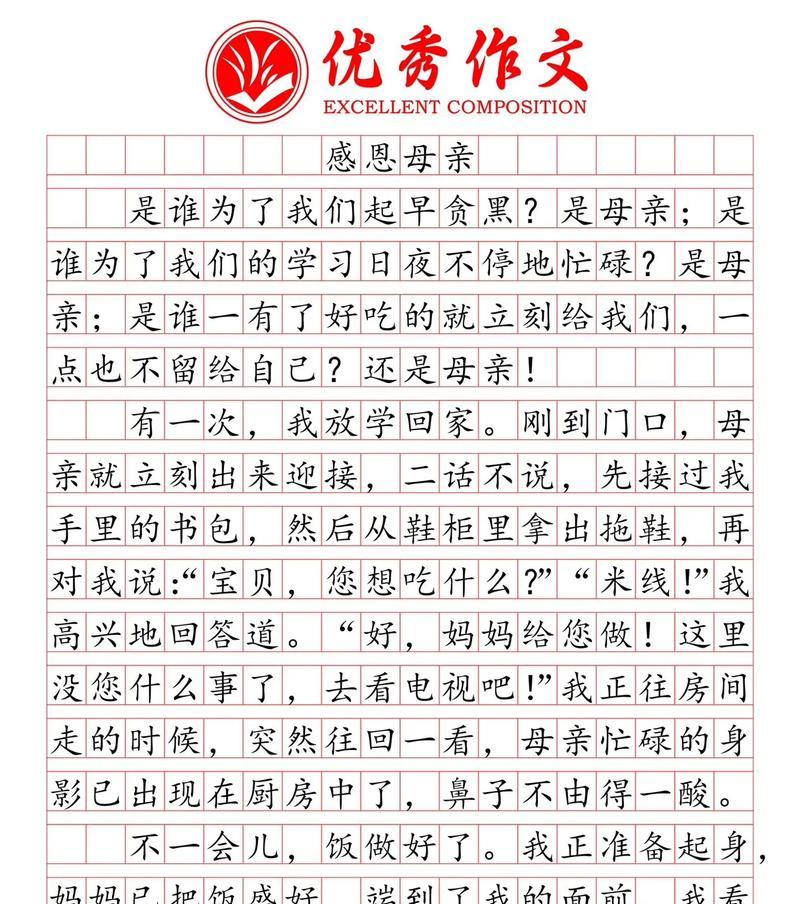 优秀作文
EXCELLENT COMPOSITION
感恩母亲
是谁为了我们起早贪黑？是母亲；是
谁为了我们的学习日夜不停地忙碌？是母
亲；是谁一有了好吃的就立刻给我们，一
点也不留给自己？还是母亲！
有一次，我放学回家。刚到门口，母
亲就立刻出来迎接，二话不说，先接过我
手里的书包，然后从鞋柜里拿出拖鞋，再
对我说：“宝贝，您想吃什么？”“米线！”我
高兴地回答道。“好，妈妈给您做！这里
没您什么事了，去看电视吧！”我正往房间
走的时候，突然往回一看，母亲忙碌的身
影已出现在厨房中了，鼻子不由得一酸。
不一会儿，饭做好了。我正准备起身，
妈妈已把饭盛好，端到了我的面前，我看